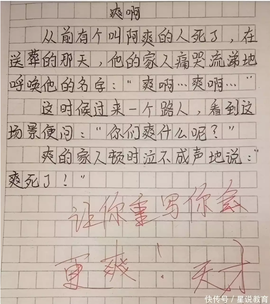 爽啊
从前有个叫阿爽的人死了，在
送葬的那天，他的家人痛哭流涕地
呼唤他的名字：“爽啊…爽啊…”
这时候过来一个路人，看到这
场景便问：“你们爽什么呢？”
爽的家人顿时泣不成声地说：“
爽死了！”
让你重写你会
更爽！天才
快传号/星说教育